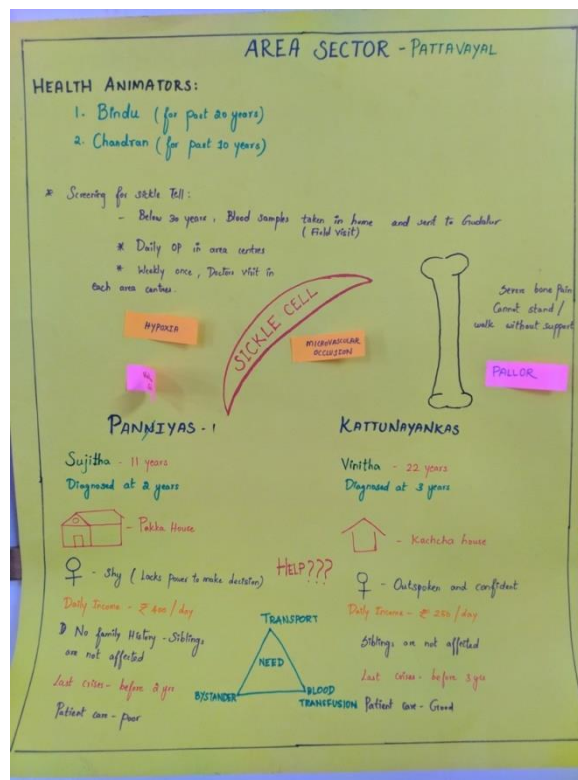 AREA SECTOR - PATTAVAYAL
HEALTH ANIMATORS:
1. Bindu (for past 20 years)
2. Chandran (for past 10 years)
* Screening for sickle Tell:
- Below 30 years, Blood samples taken in home and sent to Gudalur
(Field visit)
* Daily OP in area centres
* Weekly once, Doctors visit in
each area centres.
SICKLE CELL
HYPOXIA
MICROVASCULAR
OCCLUSION
Severe bone Pain
Cannot stand /
walk without support
PALLOR
PANNIYAS - 1
Sujitha - 11 years
Diagnosed at 2 years
- Pakka House
- Shy (Lacks power to make decision)
Daily Income - ₹ 400 / day
No family History - Siblings
are not affected
Last crises - before 2 yrs
Patient care - poor
HELP???
TRANSPORT
NEED
BYSTANDER
BLOOD
TRANSFUSION
KATTUNAYANKAS
Vinitha - 22 years
Diagnosed at 3 years
- Kachcha house
- Outspoken and confident
Daily Income - ₹ 250 / day
Siblings are not affected
Last crises - before 3 yrs
Patient care - Good